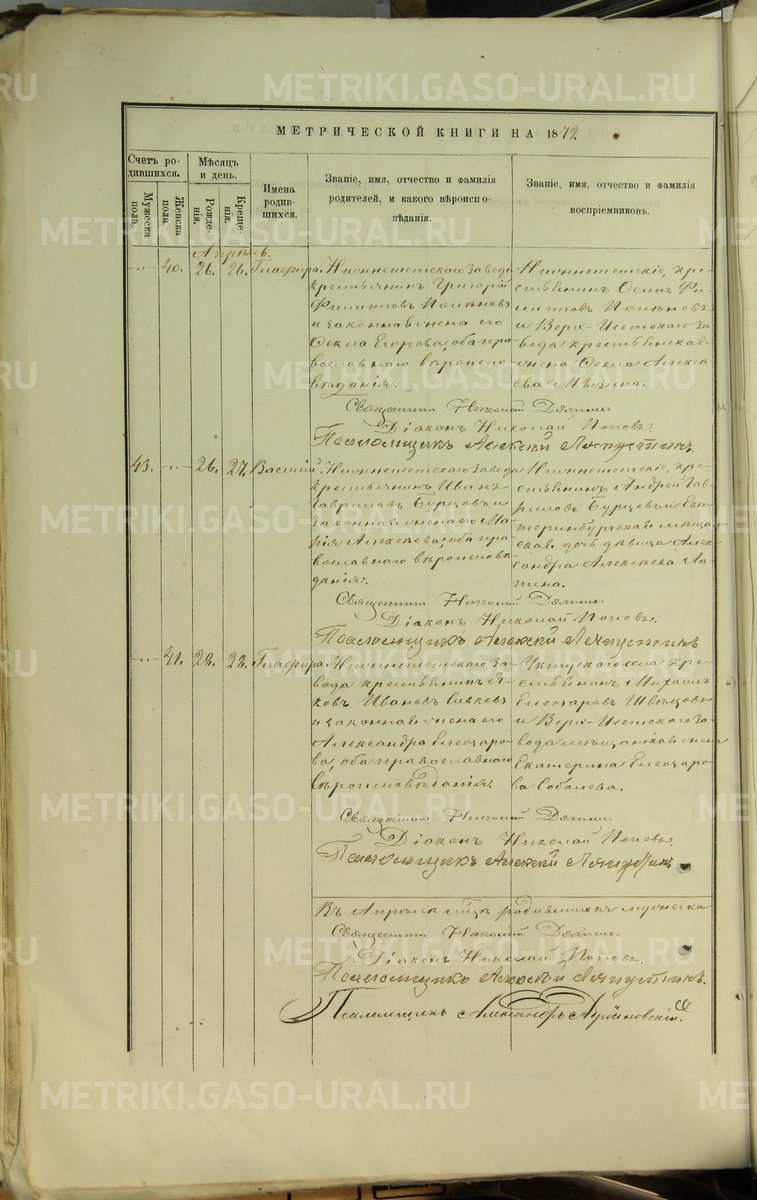 METRIKI.GASO-URAL.RU
МЕТРИЧЕСКОЙ КНИГИ НА 1872
Счетъ родившихся.
Мужеска пола.
Женска пола.
Мѣсяцъ и день.
Рожденія.
Крещенія.
Имена родившихся.
Званіе, имя, отчество и фамилія родителей, и какого вѣроисповѣданія.
Званіе, имя, отчество и фамилія воспріемниковъ.
Апрѣль.
40. 26. 26. Глафира.
Нижнеисетскаго завода
крестьянинъ Григорій
Филиповъ
и законная жена его
Фекла Егорова, оба пра-
вославнаго вѣроиспо-
вѣданія.
Нижнеисетскіе, кре-
стьянинъ Осипъ Фи-
липовъ
и Верх-Исетскаго за-
вода крестьянская
жена Фекла Алексѣ-
ева
Священникъ Николай
Діаконъ Николай Поповъ.
Псаломщикъ Алексѣй Ляпустинъ.
43. 26. 27. Василій.
Нижнеисетскаго завода
крестьянинъ Иванъ
Гавриловъ Бурцовъ и
законная жена его Ма-
рія Алексѣева, оба пра-
вославнаго вѣроисповѣ-
данія.
Нижнеисетскіе, кре-
стьянинъ Андрей Гав-
риловъ Бурцовъ и Ека-
теринбургская мѣщан-
ская дочь дѣвица Алек-
сандра Алексѣева Ла-
пина.
Священникъ Николай
Діаконъ Николай Поповъ.
Псаломщикъ Алексѣй Ляпустинъ
41. 28. 28. Глафира.
Нижнеисетскаго за-
вода крестьянинъ Я-
ковъ Ивановъ Сивковъ
и законная жена его
Александра Елеазаро-
ва, оба православнаго
вѣроисповѣданія.
Уктусскаго села кре-
стьянинъ Михаилъ
Елеазаровъ Швецовъ
и Верх-Исетскаго за-
вода мѣщанская жена
Екатерина Елеазаро-
ва Соболева.
Священникъ Николай
Діаконъ Николай Поповъ.
Псаломщикъ Алексѣй Ляпустинъ
Въ Апрѣлѣ родившихся мужеска
Священникъ Николай
Діаконъ Николай Поповъ.
Псаломщикъ Алексѣй Ляпустинъ.
Псаломщикъ Александръ